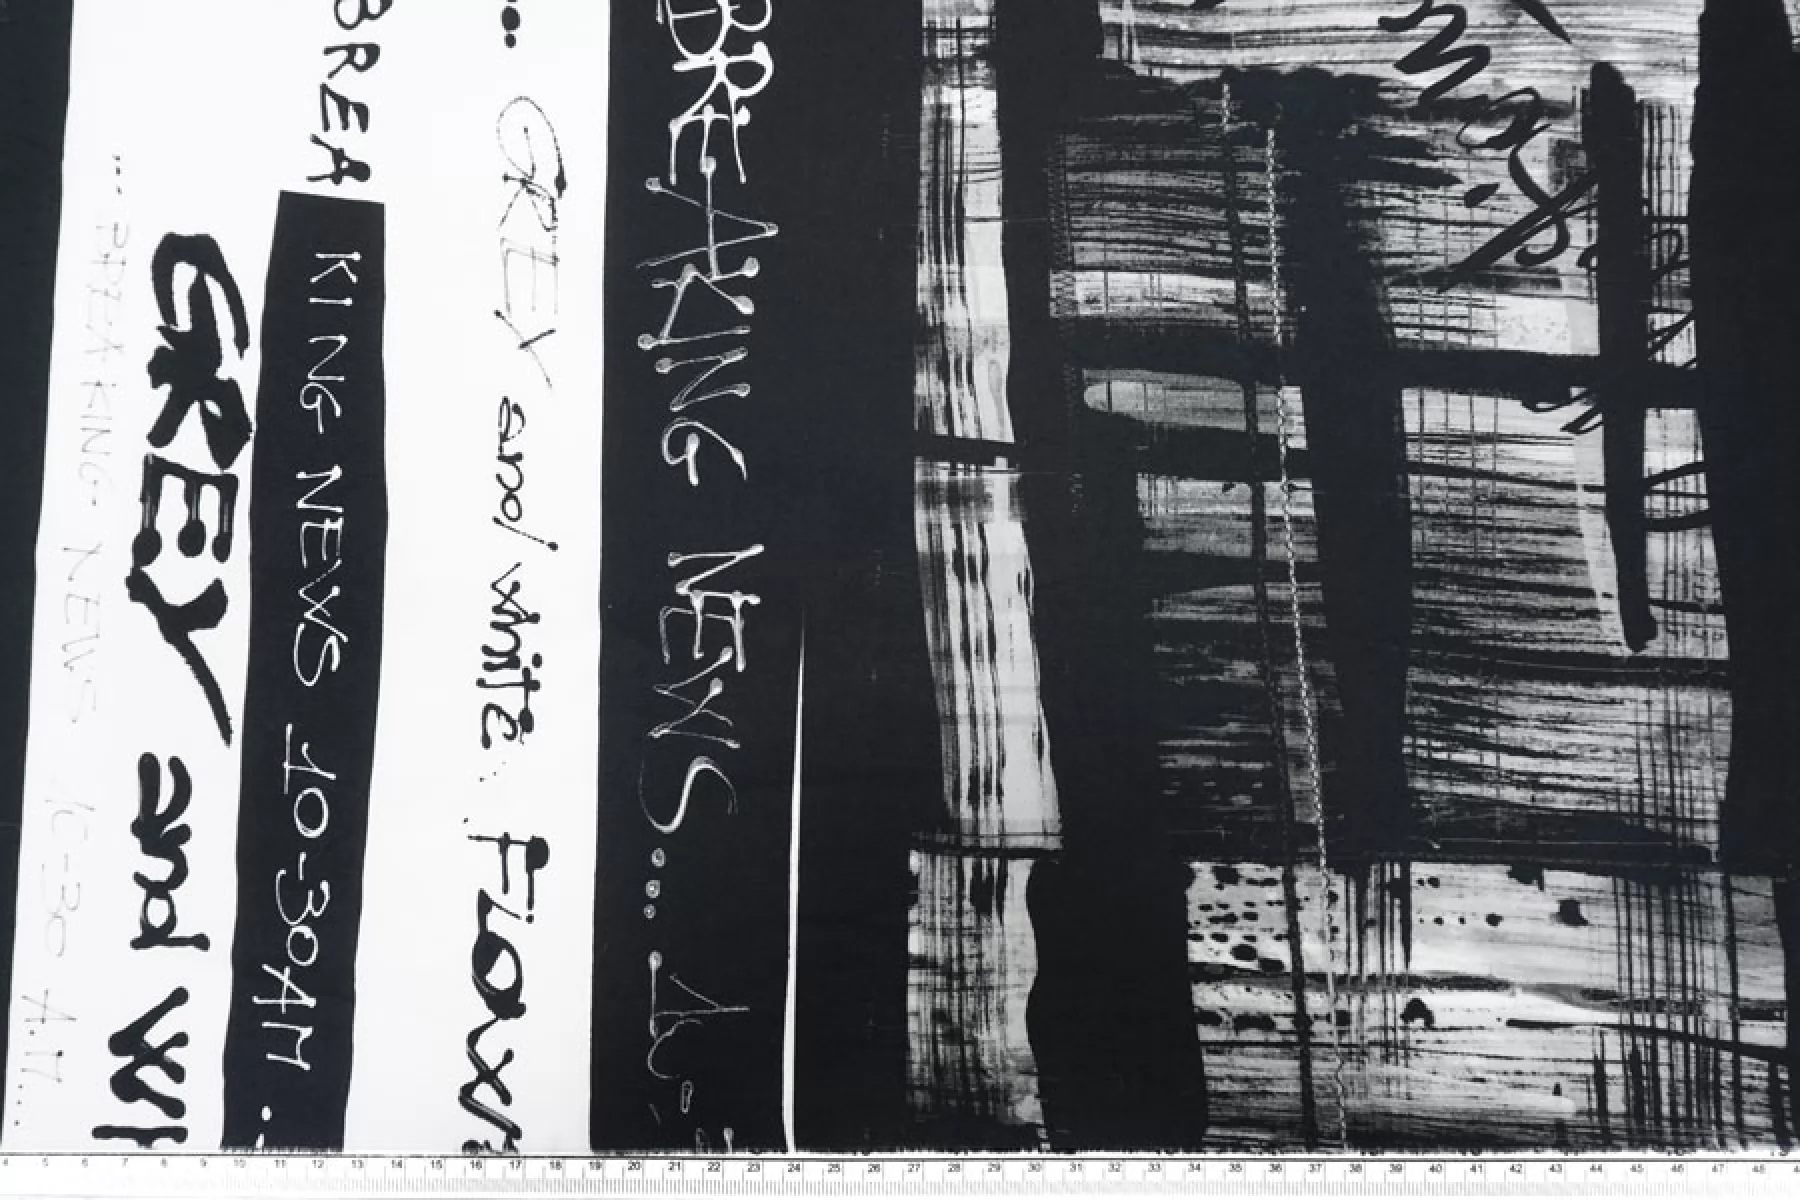 ... BREAKING NEWS 10-30 A.M...
GREY and WI
BREA
KING NEWS 10-30AM.
GREY and white... Flow
BREAKING NEWS.....10-
4 5 6 7 8 9 10 11 12 13 14 15 16 17 18 19 20 21 22 23 24 25 26 27 28 29 30 31 32 33 34 35 36 37 38 39 40 41 42 43 44 45 46 47 48